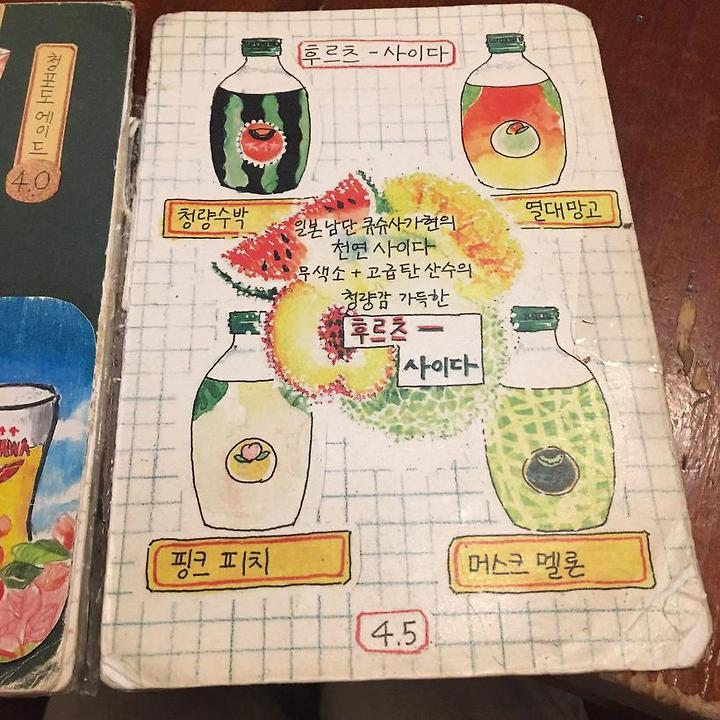 청포도 에이드
4.0
후르츠 - 사이다
청량수박
열대망고
일본 남단 큐슈사가현의
천연 사이다
무색소 + 고급탄산수의
청량감 가득한
후르츠 -
사이다
핑크 피치
머스크 멜론
4.5